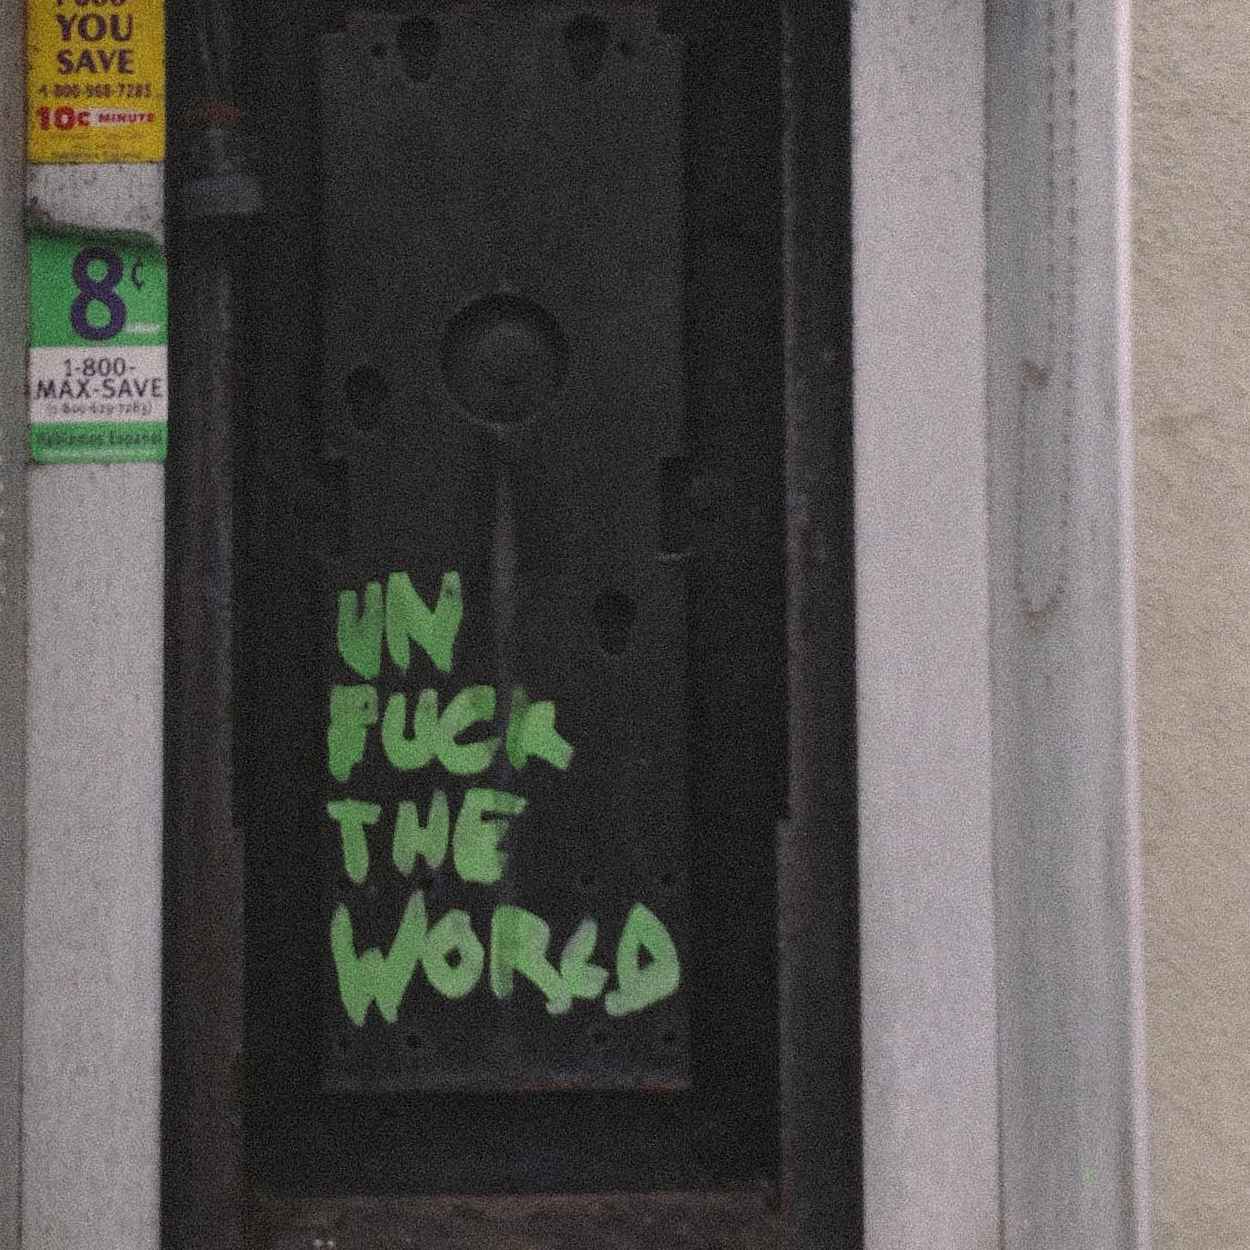 YOU
SAVE
1-800-968-7283
10¢ MINUTE
8¢
1-800-
MAX-SAVE
(1-800-629-7283)
Hablamos Español
UN
FUCK
THE
WORLD